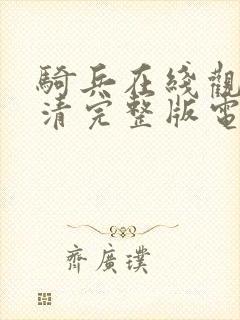 騎兵在綫觀
清完整版電
齊廣璞